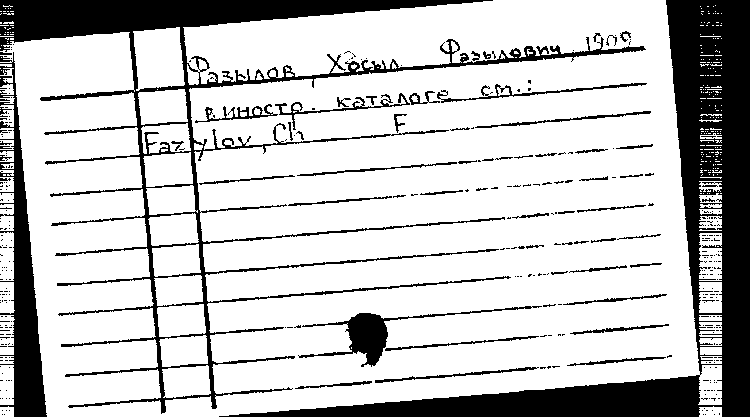 Фазылов, Хосыл Фазылович, 1909
в иностр. каталоге см.:
Fazylov, Ch F